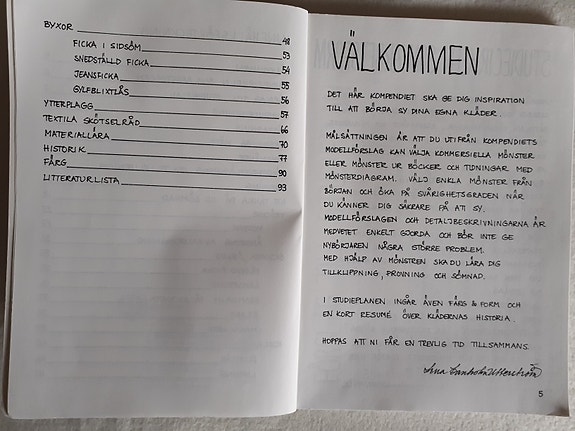 BYXOR 48
FICKA I SIDSÖM 53
SNEDSTÄLLD FICKA 54
JEANSFICKA 55
GYLFBLIXTLÅS 56
YTTERPLAGG 57
TEXTILA SKÖTSELRÅD 66
MATERIALLÄRA 70
HISTORIK 77
FÄRG 90
LITTERATURLISTA 93
VÄLKOMMEN
DET HÄR KOMPENDIET SKA GE DIG INSPIRATION
TILL ATT BÖRJA SY DINA EGNA KLÄDER.
MÅLSÄTTNINGEN ÄR ATT DU UTIFRÅN KOMPENDIETS
MODELLFÖRSLAG KAN VÄLJA KOMMERSIELLA MÖNSTER
ELLER MÖNSTER UR BÖCKER OCH TIDNINGAR MED
MÖNSTERDIAGRAM. VÄLJ ENKLA MÖNSTER FRÅN
BÖRJAN OCH ÖKA PÅ SVÅRIGHETSGRADEN NÄR
DU KÄNNER DIG SÄKRARE PÅ ATT SY.
MODELLFÖRSLAGEN OCH DETALJBESKRIVNINGARNA ÄR
MEDVETET ENKELT GJORDA OCH BÖR INTE GE
NYBÖRJAREN NÅGRA STÖRRE PROBLEM.
MED HJÄLP AV MÖNSTREN SKA DU LÄRA DIG
TILLKLIPPNING, PROVNING OCH SÖMNAD.
I STUDIEPLANEN INGÅR ÄVEN FÄRG & FORM OCH
EN KORT RESUMÉ ÖVER KLÄDERNAS HISTORIA.
HOPPAS ATT NI FÅR EN TREVLIG TID TILLSAMMANS.
5